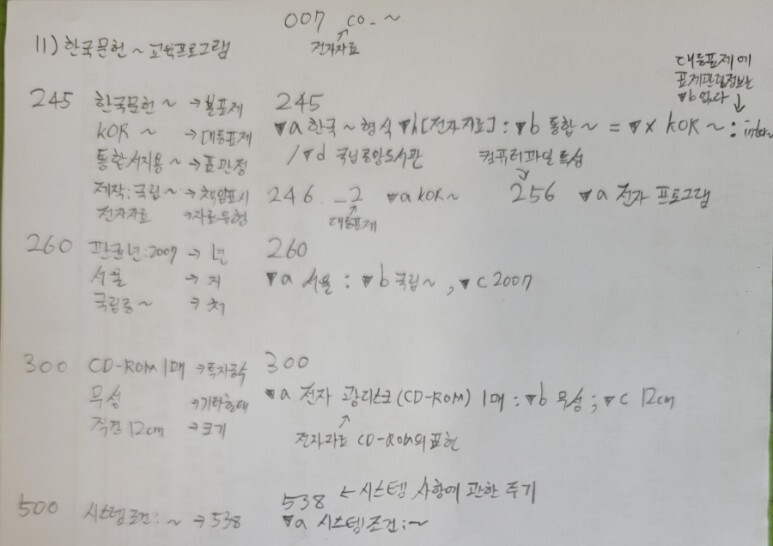 007 co_~
전자자료
11) 한국문헌 ~ 교육프로그램
대등표제에
표제관련정보는
▼b 없다
245 한국문헌 ~ → 본표제
KOR ~ → 대등표제
통합서지용 ~ → 표관정
제작: 국립 ~ → 책임표시
전자자료 → 자료유형
245
▼a 한국 ~ 형식 ▼h [전자자료] : ▼b 통합 ~ = ▼x KOR ~ :
/ ▼d 국립중앙도서관
컴퓨터파일 특성
246 _2 ▼a KOR ~
대등표제
256 ▼a 전자 프로그램
260 판권년: 2007 → 년
서울 → 지
국립중 ~ → 처
260
▼a 서울 : ▼b 국립 ~ , ▼c 2007
300 CD-ROM 1매 → 특자종수
무성 → 기타형태
직경 12cm → 크기
300
▼a 전자 광디스크 (CD-ROM) 1매 : ▼b 무성 ; ▼c 12cm
전자자료 CD-ROM의 표현
500 시스템조건: ~ → 538
538 ← 시스템 사항에 관한 주기
▼a 시스템조건: ~